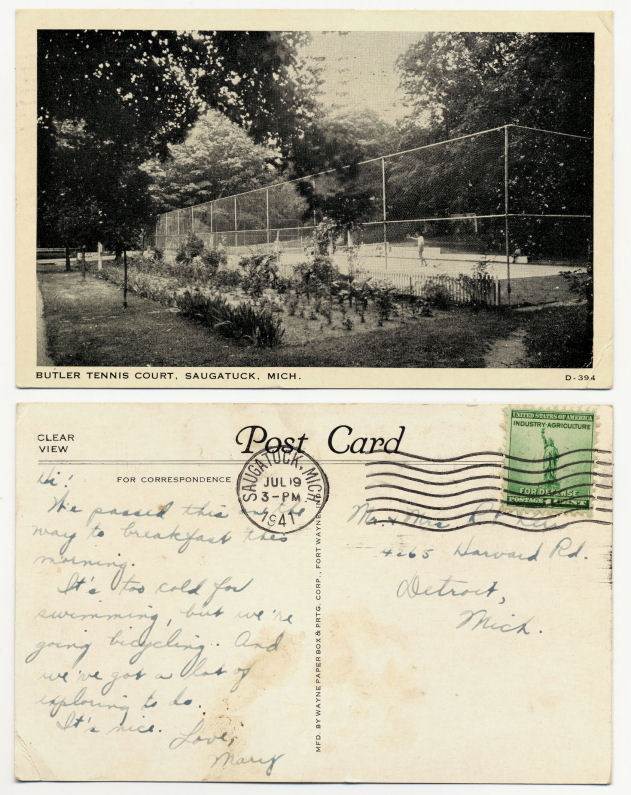 BUTLER TENNIS COURT, SAUGATUCK, MICH.
D-394
CLEAR
VIEW
Post Card
FOR CORRESPONDENCE
SAUGATUCK, MICH.
JUL 19
3-PM
1941
UNITED STATES OF AMERICA
INDUSTRY·AGRICULTURE
FOR DEFENSE
POSTAGE 1 CENT
Hi!
We passed this on the
way to breakfast this
morning.
It's too cold for
swimming, but we're
going bicycling. And
we've got a lot of
exploring to do.
It's nice.
Love,
Mary
MFD. BY WAYNE PAPER BOX & PRTG. CORP., FORT WAYNE, IND.
Mr. & Mrs
4265 Harvard Rd.
Detroit,
Mich.